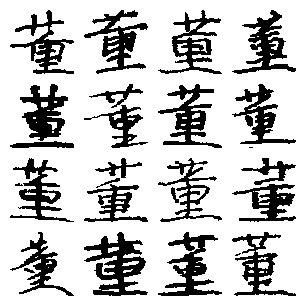 董董董董
董董董董
董董董董
董董董董